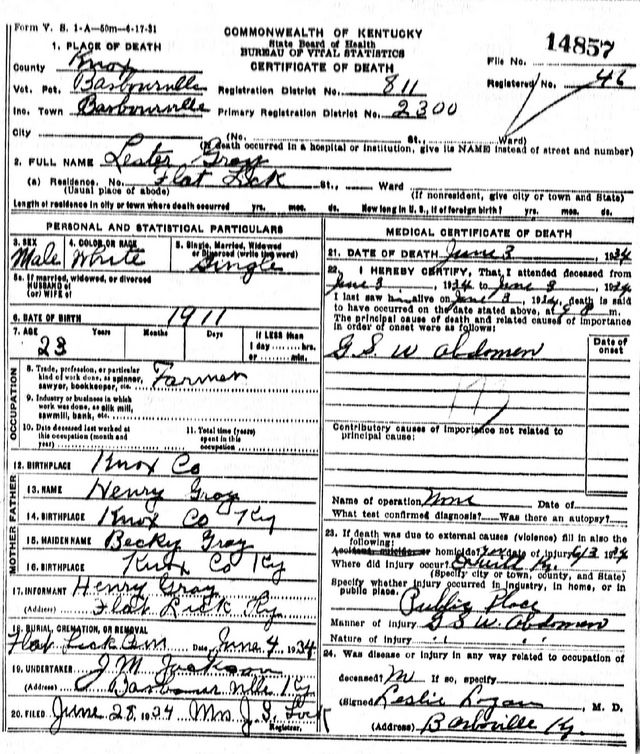 Form V. S. 1-A—50m—4-17-31
COMMONWEALTH OF KENTUCKY
State Board of Health
BUREAU OF VITAL STATISTICS
CERTIFICATE OF DEATH
File No. 14857
Registered No. 46
1. PLACE OF DEATH
County Knox
Vot. Pct. Barbourville Registration District No. 811
Inc. Town Barbourville Primary Registration District No. 2300
City (No. St., Ward)
(If death occurred in a hospital or institution, give its NAME instead of street and number)
2. FULL NAME Lester Gray
(a) Residence. No. Flat Lick St., Ward
(Usual place of abode) (If nonresident, give city or town and State)
Length of residence in city or town where death occurred yrs. mos. ds. How long in U. S., if of foreign birth? yrs. mos. ds.
PERSONAL AND STATISTICAL PARTICULARS
3. SEX Male
4. COLOR OR RACE White
5. Single, Married, Widowed or Divorced (write the word) Single
5a. If married, widowed, or divorced
HUSBAND of
(or) WIFE of
6. DATE OF BIRTH 1911
7. AGE Years Months Days If LESS than
23 1 day hrs.
or min.
OCCUPATION
8. Trade, profession, or particular
kind of work done, as spinner, Farmer
sawyer, bookkeeper, etc.
9. Industry or business in which
work was done, as silk mill,
sawmill, bank, etc.
10. Date deceased last worked at
this occupation (month and
year)
11. Total time (years)
spent in this
occupation
12. BIRTHPLACE Knox Co
MOTHER FATHER
13. NAME Henry Gray
14. BIRTHPLACE Knox Co Ky
15. MAIDEN NAME Becky Gray
16. BIRTHPLACE Knox Co Ky
17. INFORMANT Henry Gray
(Address) Flat Lick Ky.
18. BURIAL, CREMATION, OR REMOVAL
Flat Lick Date June 4, 1934
19. UNDERTAKER J M Jackson
(Address) Barbourville Ky.
20. FILED June 28, 1934 Mrs J. S.
Registrar.
MEDICAL CERTIFICATE OF DEATH
21. DATE OF DEATH June 3, 1934
22. I HEREBY CERTIFY, That I attended deceased from
June 3, 1934 to June 3, 1934
I last saw him alive on June 3, 1934, death is said
to have occurred on the date stated above, at 8 m.
The principal cause of death and related causes of importance
in order of onset were as follows:
Date of
onset
G S W Abdomen
Contributory causes of importance not related to
principal cause:
Name of operation None Date of
What test confirmed diagnosis? Was there an autopsy?
23. If death was due to external causes (violence) fill in also the
following:
Accident, suicide, or homicide? Date of injury 6/3 1934
Where did injury occur? Ky.
(Specify city or town, county, and State)
Specify whether injury occurred in industry, in home, or in
public place. Public Place
Manner of injury G S W. Abdomen
Nature of injury " " " "
24. Was disease or injury in any way related to occupation of
deceased? No If so, specify
(Signed) Leslie Logan, M. D.
(Address) Barbville Ky.